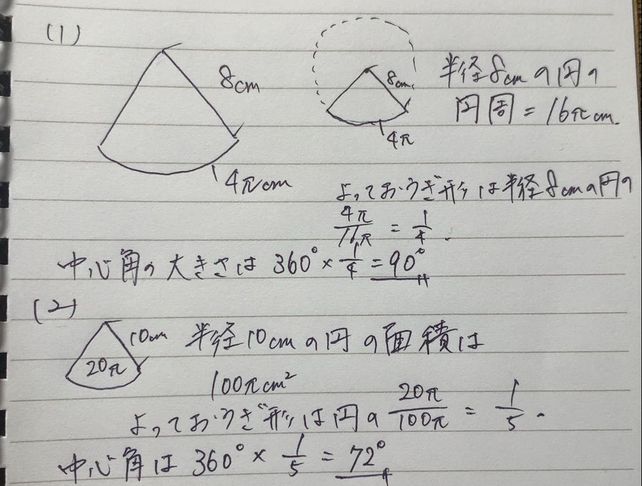 (1)
8cm
4πcm
8cm
4π
半径8cmの円の
円周=16πcm.
よっておうぎ形は半径8cmの円の
4π/16π = 1/4.
中心角の大きさは 360°×1/4=90°
(2)
10cm
20π
半径10cmの円の面積は
100πcm²
よっておうぎ形は円の 20π/100π = 1/5.
中心角は 360°×1/5=72°